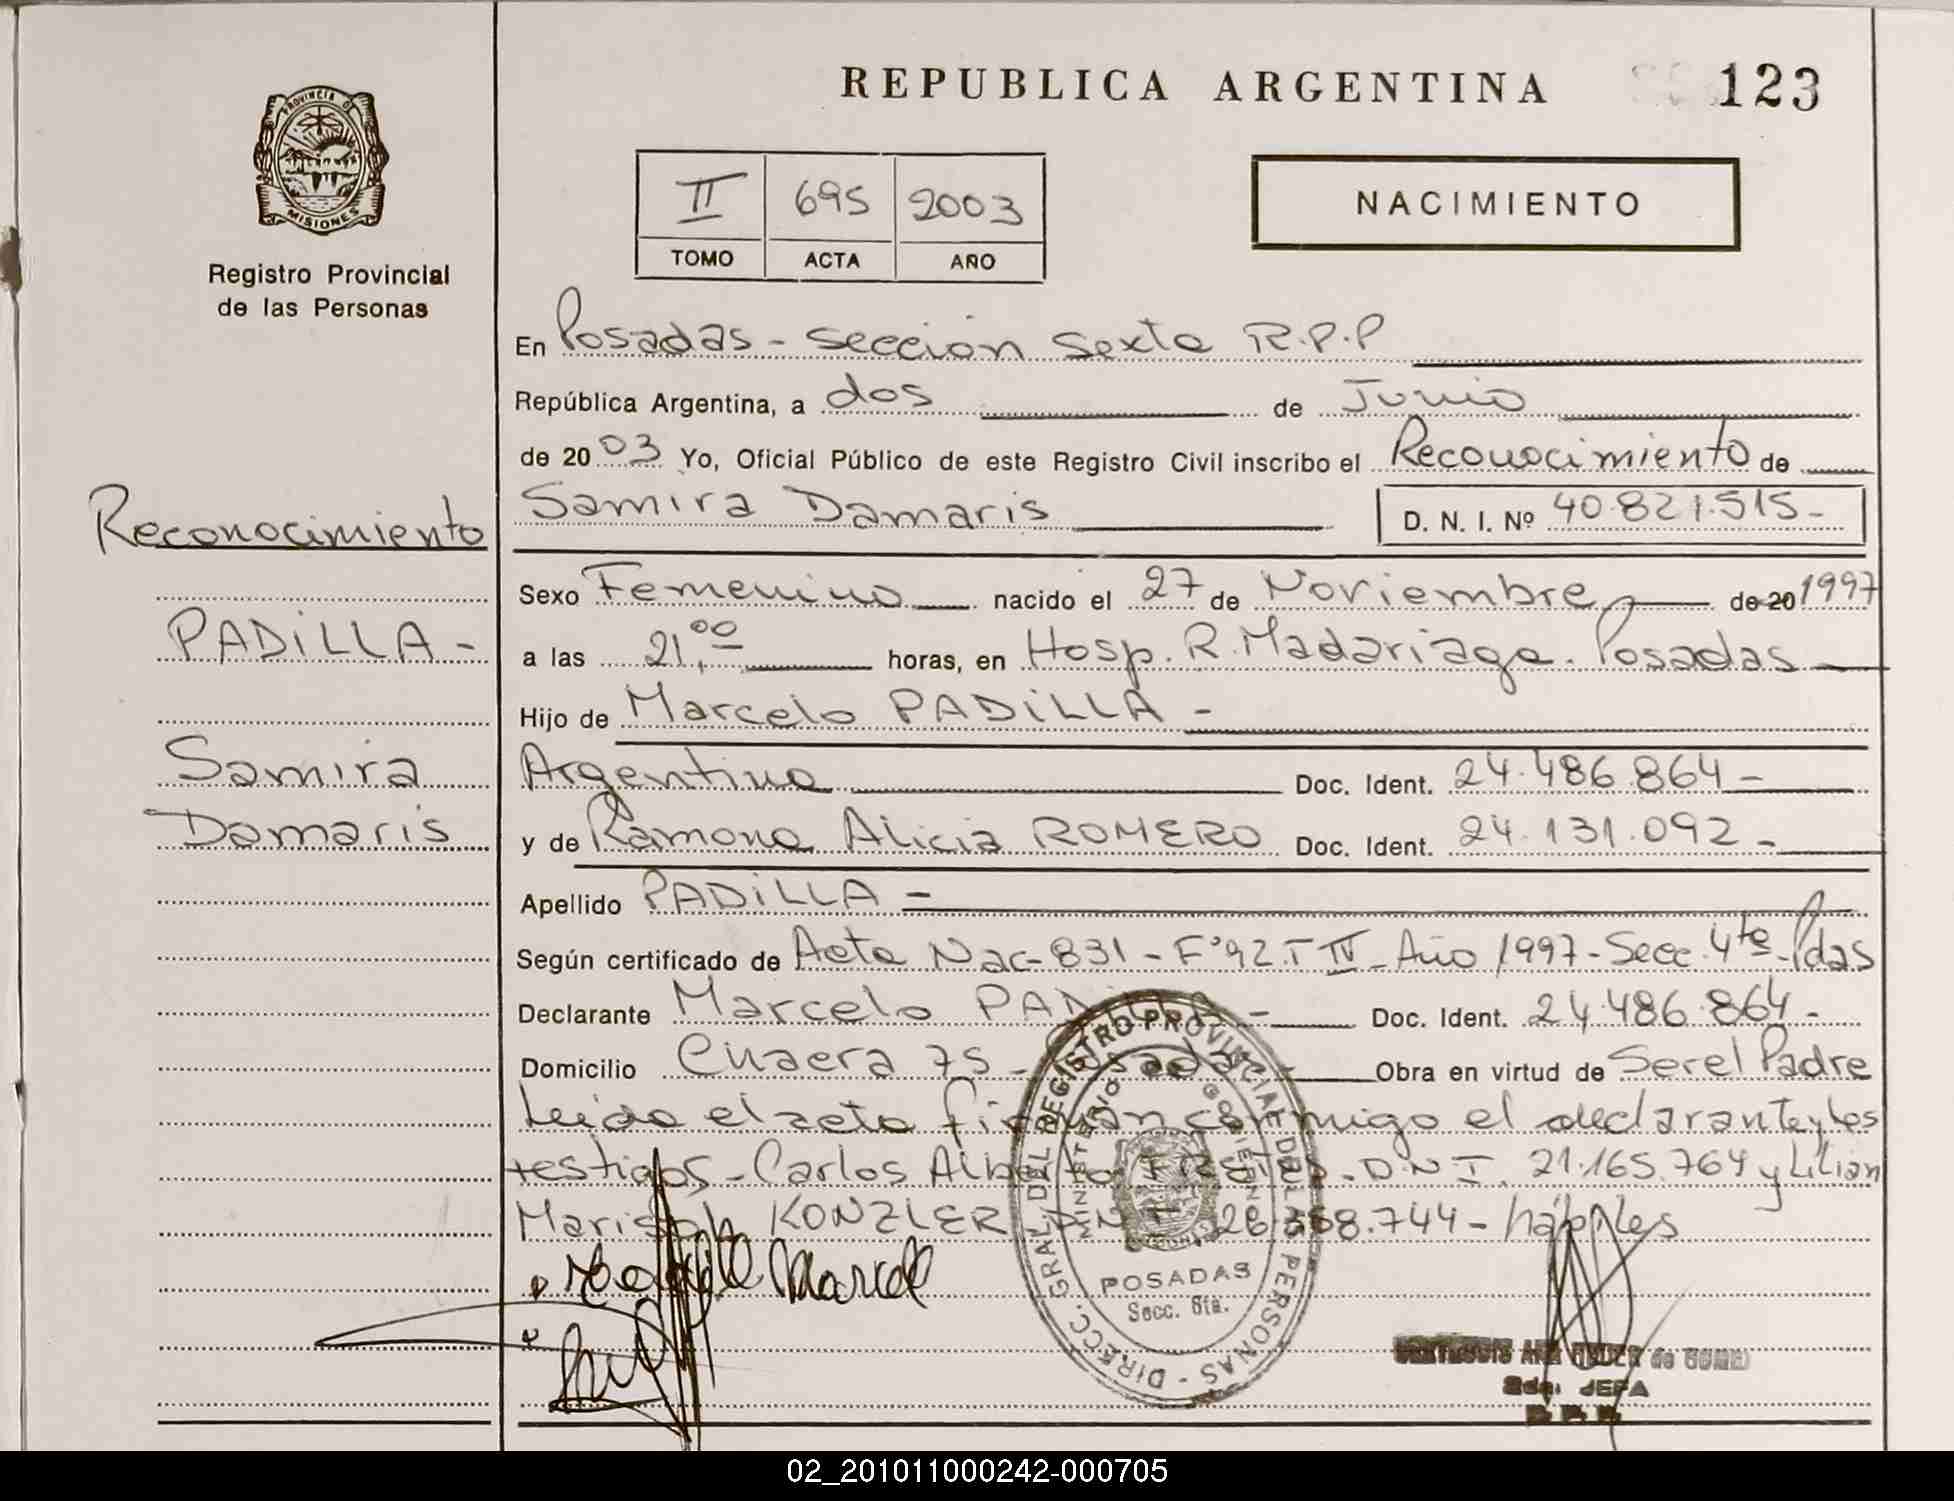 REPUBLICA ARGENTINA
123
PROVINCIA DE
MISIONES
Registro Provincial
de las Personas
II 695 2003
TOMO ACTA AÑO
NACIMIENTO
En Posadas - Sección Sexta R.P.P
República Argentina, a dos de Junio
de 2003 Yo, Oficial Público de este Registro Civil inscribo el Reconocimiento de
Samira Damaris D. N. I. Nº 40.821.515-
Reconocimiento
PADILLA -
Samira
Damaris
Sexo Femenino nacido el 27 de Noviembre de 20 1997
a las 21,00 horas, en Hosp. R. Madariaga. Posadas
Hijo de Marcelo PADILLA -
Argentino Doc. Ident. 24.486.864-
y de Ramona Alicia ROMERO Doc. Ident. 24.131.092-
Apellido PADILLA -
Según certificado de Acta Nac-831 - Fº92 T IV - Año 1997 - Secc. 4ta - Pdas
Declarante Marcelo PADILLA - Doc. Ident. 24.486.864-
Domicilio 75 - Posadas - Obra en virtud de Ser el Padre
Leida el acta firman conmigo el declarante y los
testigos - Carlos Alberto D.N.I. 21.165.764 y Lilian
Marisol KONZLER DNI 28.368.744 - hábiles
DIRECC. GRAL. DEL REGISTRO PROVINCIAL DE LAS PERSONAS
MINISTERIO GOBIERNO
POSADAS
Secc. 6ta.
2da. JEFA
02_201011000242-000705